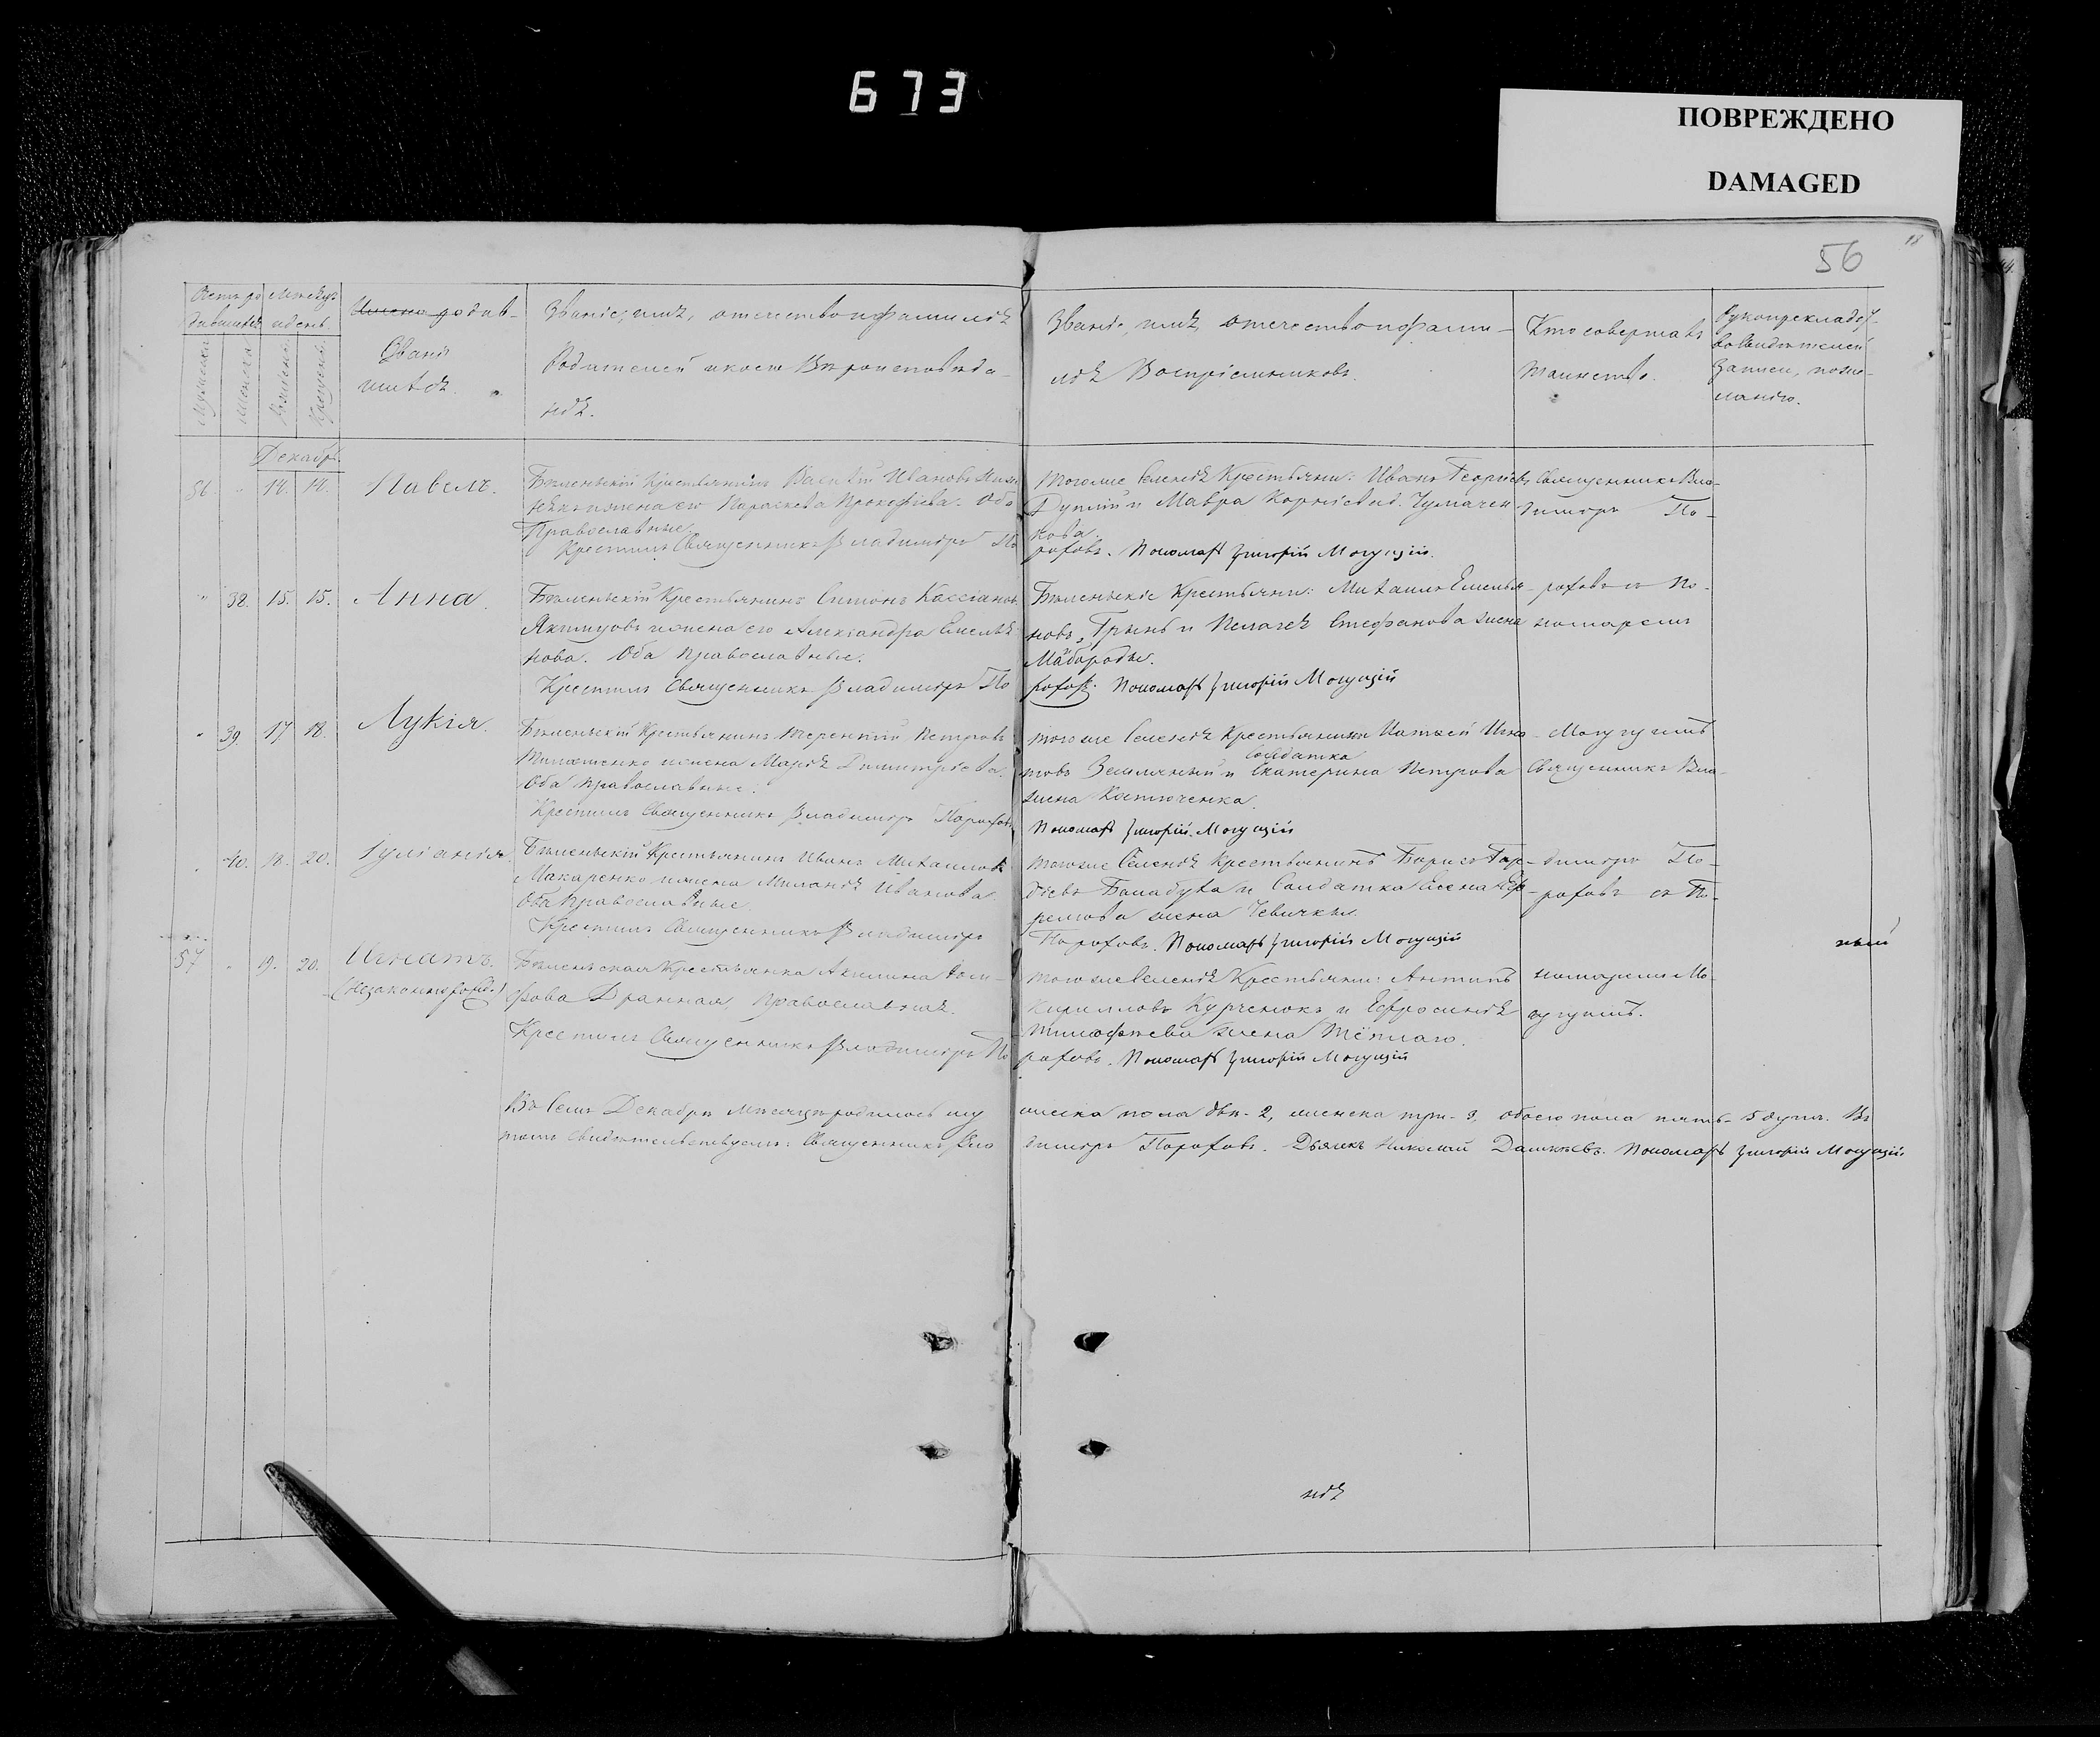 673
ПОВРЕЖДЕНО
DAMAGED
56
18
Счетъ ро- Мѣсяцъ
дившихся и день.
Имена родив-
шихся.
Званіе, имя, отчество и фамилія
Родителей и какого Вѣроисповѣда-
нія.
Званіе, имя, отчество и фами-
лія Воспріемниковъ.
Кто совершалъ
таинство.
Рукоприкладст-
во свидѣтелей
записи, по же-
ланію.
Мужеска
Женска
Рожденія
Крещенія
Декабрь.
56. " 14. 14. Павелъ.
Бѣленьскій Крестьянинъ Василій Ивановъ
и жена его Параскева Прокофіева. Оба
Православные.
Крестилъ Священникъ Владиміръ По
Тогоже Селенія Крестьяне: Иванъ Георгіевъ
и Мавра Корніева
роховъ. Пономарь Григорій Могущій.
Священникъ Вла-
диміръ По-
" 38. 15. 15. Анна.
Бѣленьскій Крестьянинъ Симонъ Кассіановъ
и жена его Александра Емелья
нова. Оба православные.
Крестилъ Священникъ Владиміръ По
Бѣленьскіе Крестьяне: Михаилъ Емелья-
новъ Грынь и Пелагея Стефанова жена
Майбороды.
роховъ. Пономарь Григорій Могущій
роховъ съ По-
номаремъ
" 39. 17. 18. Лукія.
Бѣленьскій Крестьянинъ Терентій Петровъ
Тимошенко и жена Марія Димитріева.
Оба православные.
Крестилъ Священникъ Владиміръ Пороховъ
тогоже Селенія Крестьянинъ Игна
товъ Земляный и Солдатка Екатерина Петрова
жена Костюченка.
Пономарь Григорій Могущій
Могущимъ
Священникъ Вла-
" 40. 18. 20. Іуліанія.
Бѣленьскій Крестьянинъ Иванъ Михаиловъ
Макаренко и жена Меланія Иванова.
Оба православные.
Крестилъ Священникъ Владиміръ
тогоже Селенія Крестьянинъ Борисъ Гор-
дѣевъ Балабуха и Солдатка Елена Еф-
ремова жена Чевички.
Пороховъ. Пономарь Григорій Могущій
диміръ По-
роховъ съ По-
ный
57 " 19. 20. Игнатъ.
(Незаконнорожд.)
Бѣленьская Крестьянка Акилина
Дранная, православная.
Крестилъ Священникъ Владиміръ По
тогоже Селенія Крестьяне: Антипъ
Кирилловъ Курченокъ и Ефросинія
Тимофѣева жена Тёплаго.
роховъ. Пономарь Григорій Могущій
номаремъ Мо-
гущимъ.
Въ Семъ Декабрѣ мѣсяцѣ родилось му
жеска пола два- 2, женска три- 3, обоего пола пять- 5 душъ. Въ
томъ свидѣтельствуемъ: Священникъ Вла
диміръ Пороховъ. Дьячекъ Николай Пономарь Григорій Могущій
нія